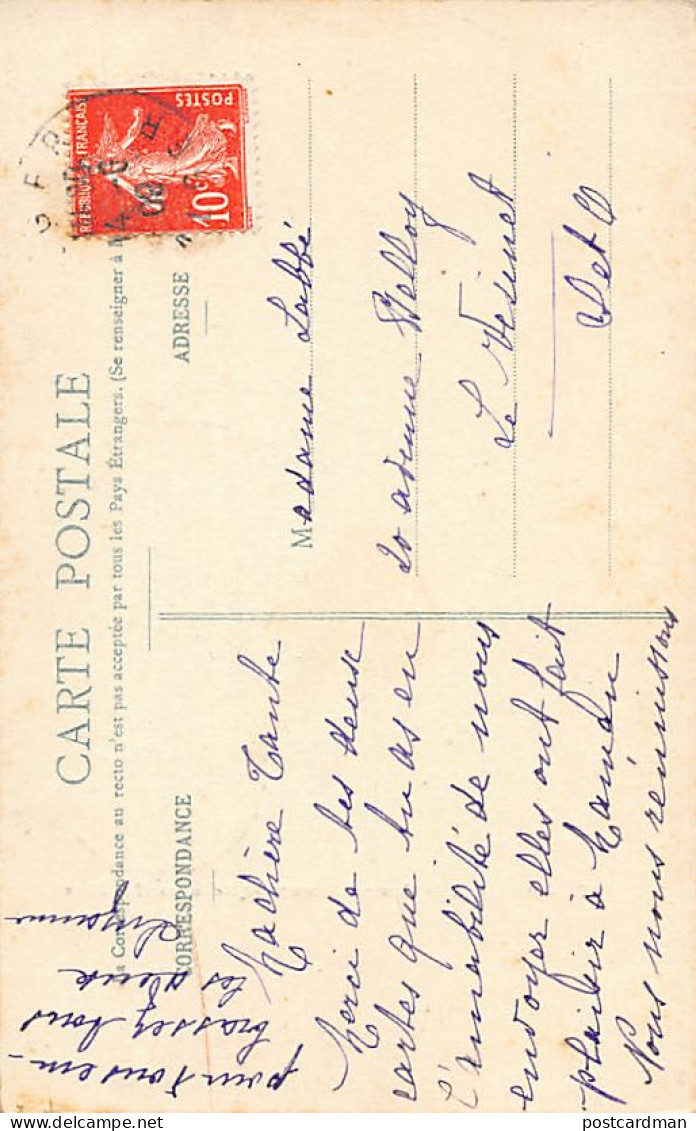 CARTE POSTALE
la Correspondance au recto n'est pas acceptée par tous les Pays Étrangers. (Se renseigner à
CORRESPONDANCE
ADRESSE
RÉPUBLIQUE FRANÇAISE
POSTES
10c
Madame Labbé
20 avenue
Le Vésinet
S et O
Ma chère Tante
Merci de tes deux
cartes que tu as eu
l'amabilité de nous
envoyer elles ont fait
plaisir à Maman
Nous nous réunissons
pour t'ous em-
brasser tous
les deux
postcardman